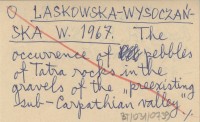 LASKOWSKA-WYSOCZAŃ-
SKA W. 1967. The
occurrence of pebbles
of Tatra rocks in the
gravels of the „preexisting
sub-Carpathian valley”.